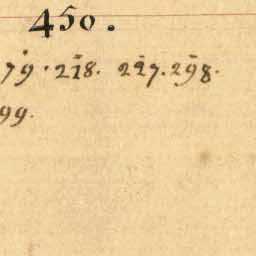 450.
79. 218. 297. 298.
99.